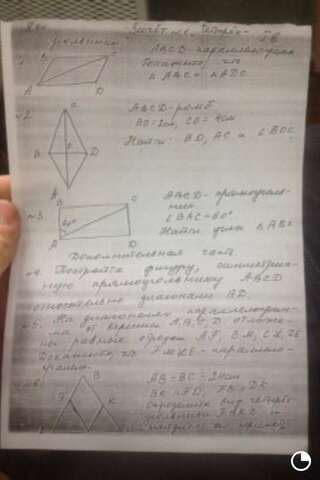 Зачёт №1 "Четырёх-
угольники"
1.
B
C
A
D
ABCD - параллелограмм
Докажите, что
∆ ABC = ∆ ADC.
№2.
C
B
D
A
ABCD - ромб
BO = 2см, CO = 4см
Найти: BD, AC и ∠BOC.
№3.
B
C
60°
A
D
ABCD - прямоуголь-
ник.
∠BAC = 60°
Найти углы ∆ABC
Дополнительная часть
№4. Постройте фигуру, симметрич-
ную прямоугольнику ABCD
относительно диагонали BD.
№5. На диагоналях параллелограм-
ма от вершины A, B, C, D отложе-
ны равные отрезки AF, BM,
Докажите, что - параллело-
грамм.
№6.
B
F
K
AB = BC = 24см
Определите вид четырёх-
угольника FBKD и